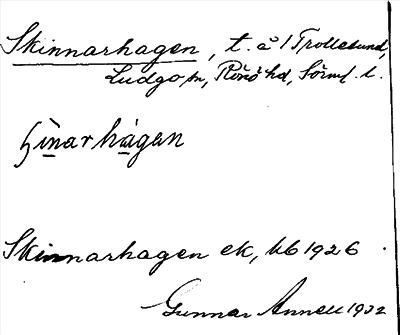 Skinnarhagen, t. å 1 Trollesund,
Ludgo sn, Rönö hd, Sörml. l.
ʃìnarhágen
Skinnarhagen ek, kb 1926
Gunnar Annell 1932